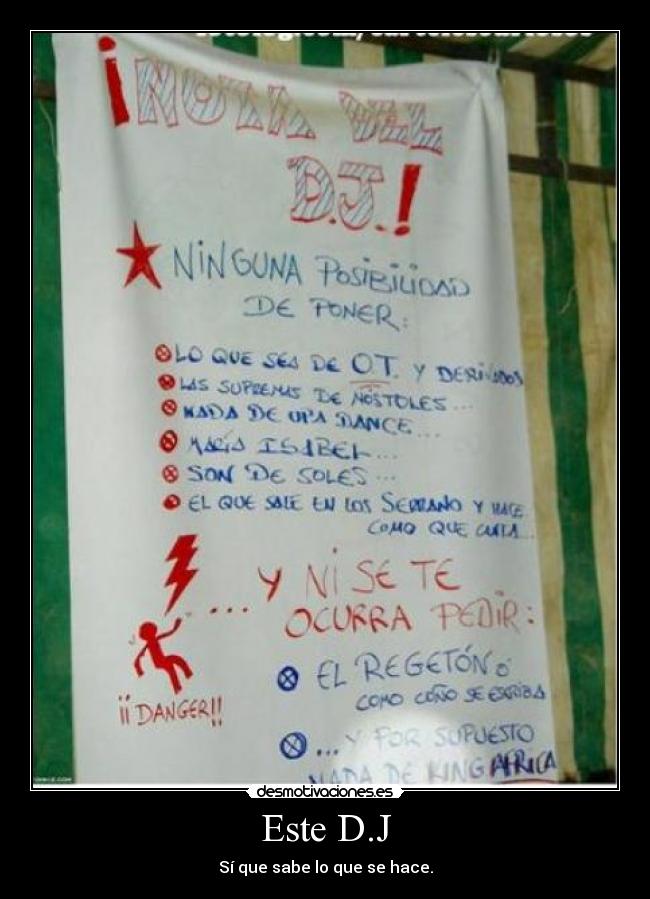 ¡NOTA DEL
D.J.!
NINGUNA POSIBILIDAD
DE PONER:
LO QUE SEA DE O.T. Y DERIVADOS
LAS SUPREMAS DE MÓSTOLES...
NADA DE UPA DANCE...
MARÍA ISABEL...
SON DE SOLES...
EL QUE SALE EN LOS SERRANO Y HACE
COMO QUE CANTA...
...Y NI SE TE
OCURRA PEDIR:
EL REGETÓN Ó
COMO COÑO SE ESCRIBA
¡¡DANGER!!
...Y POR SUPUESTO
NADA DE KING AFRICA
desmotivaciones.es
Este D.J
Sí que sabe lo que se hace.